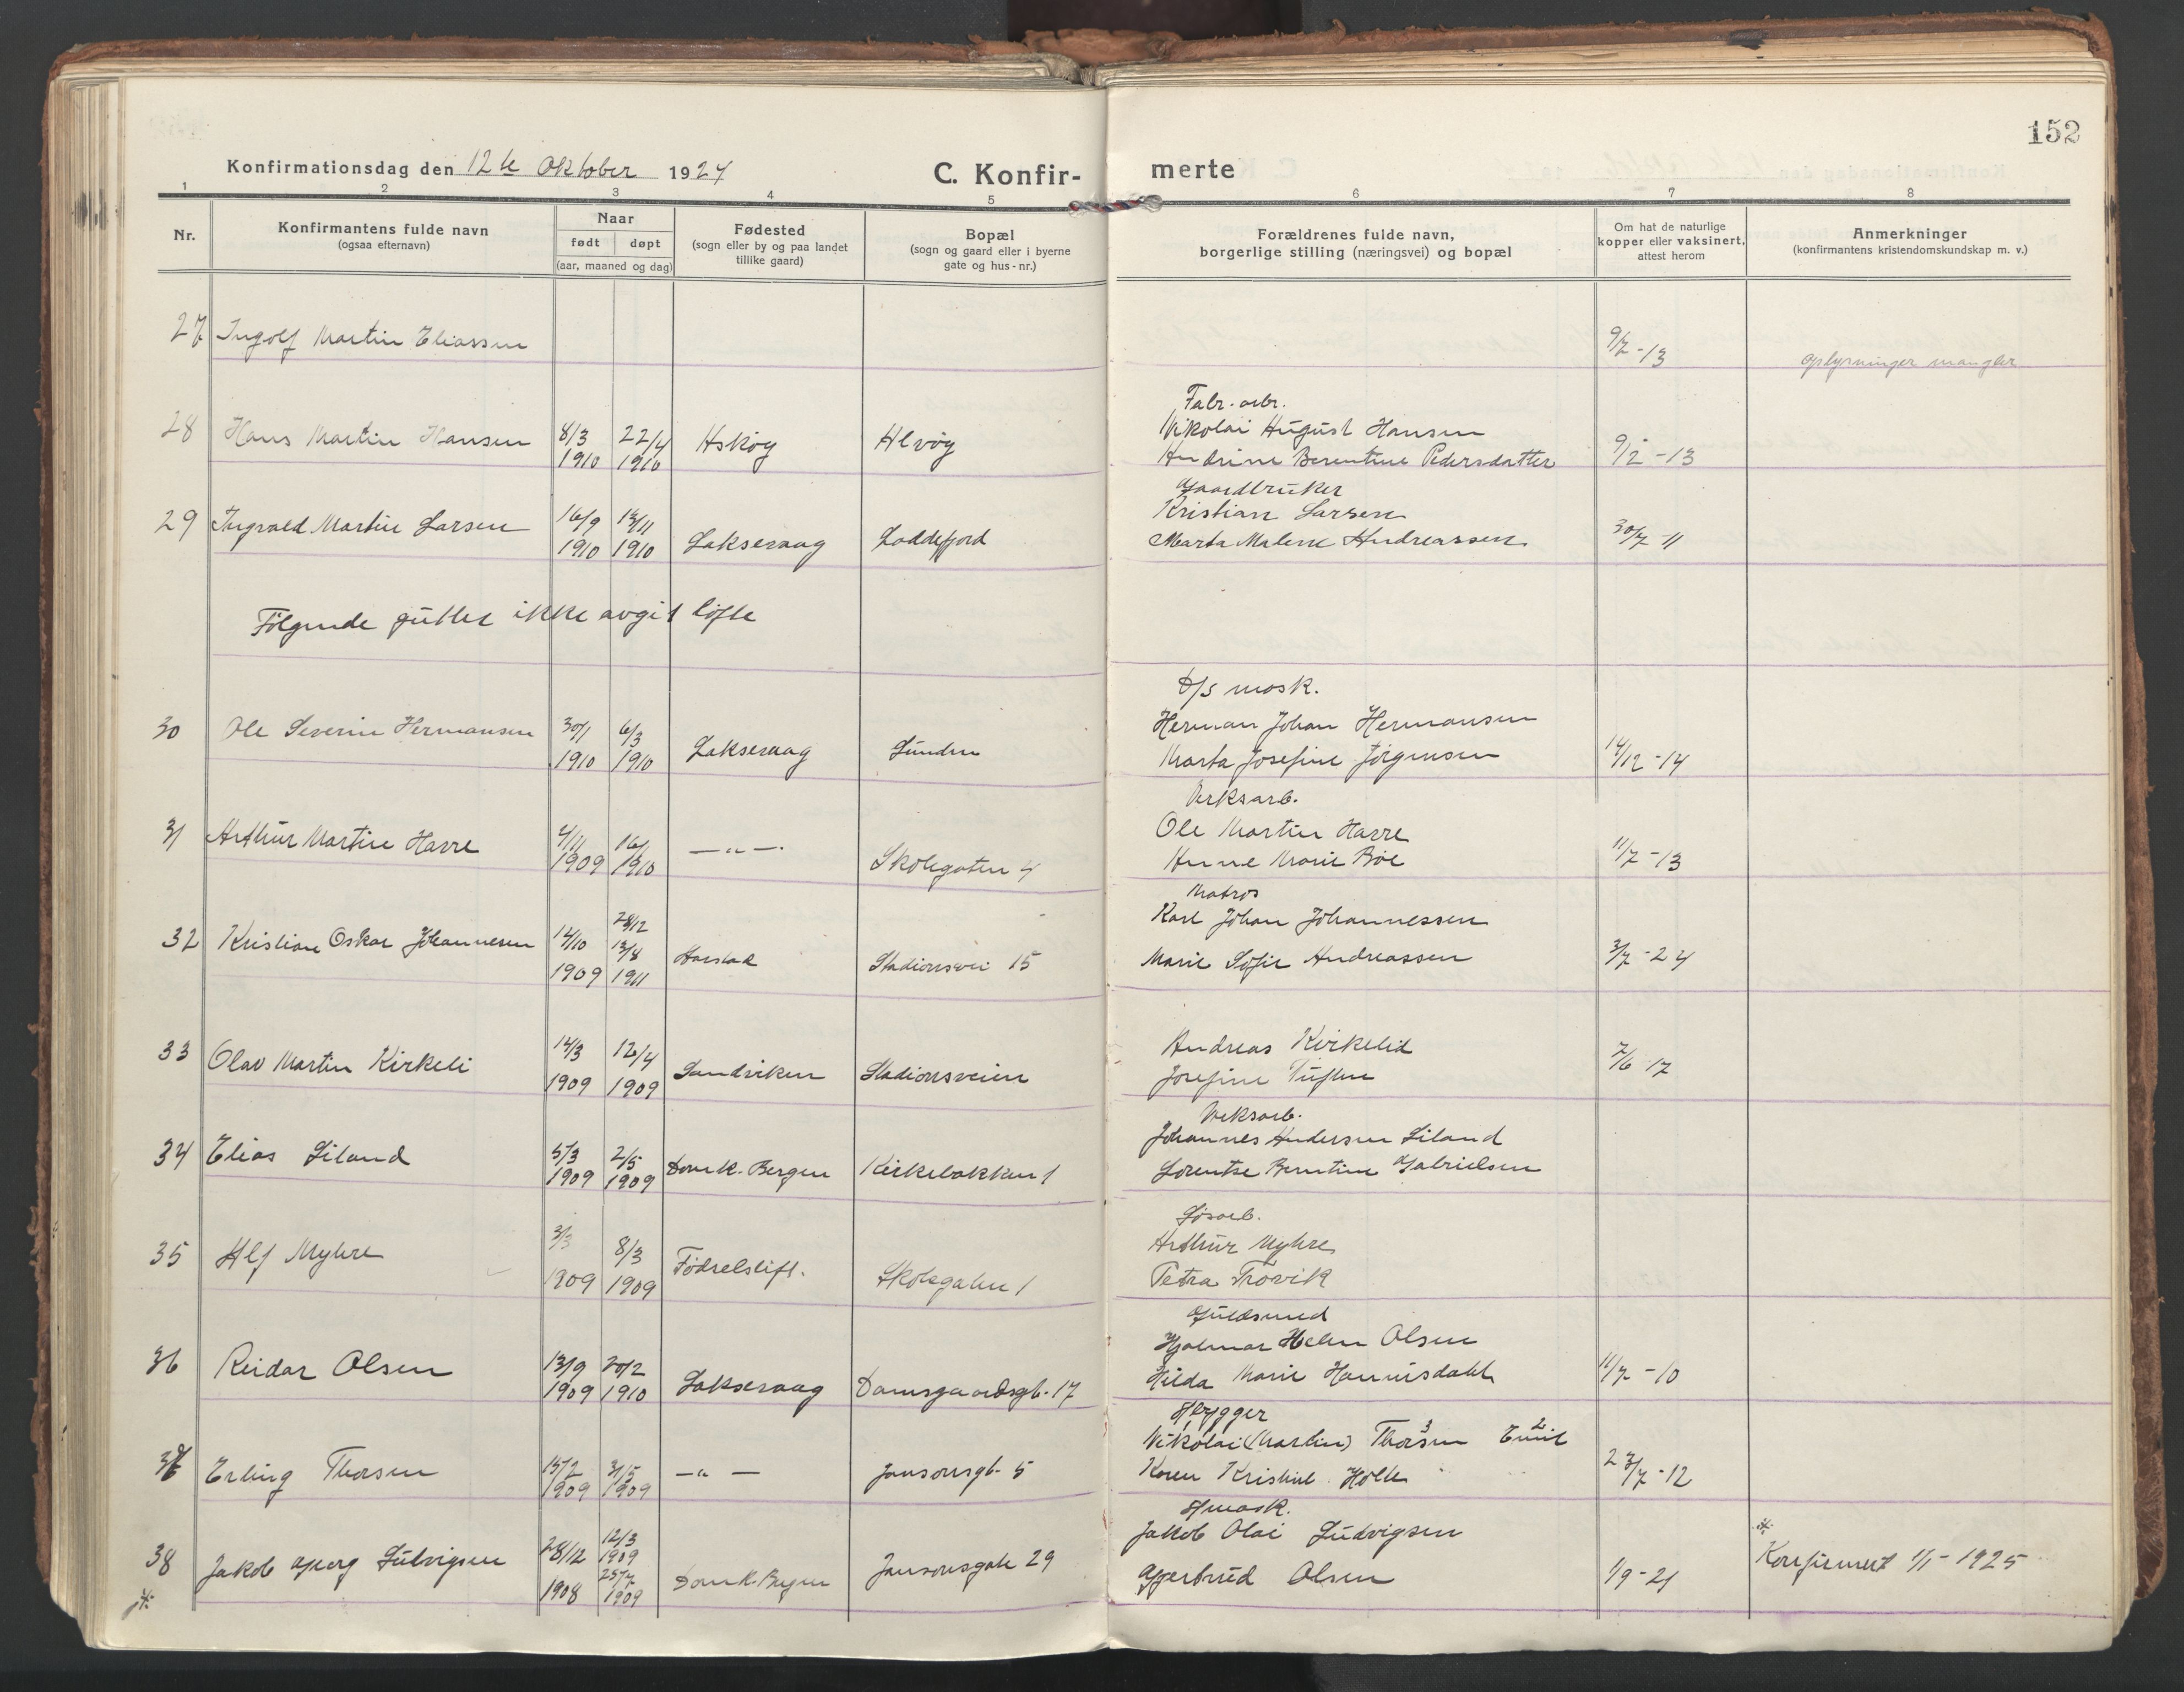 152
Konfirmationsdag den 12te Oktober 1924
C. Konfir- merte
1 2 3 4 5 6 7 8
Nr.
Konfirmantens fulde navn
(ogsaa efternavn)
Naar
født døpt
(aar, maaned og dag)
Fødested
(sogn eller by og paa landet
tillike gaard)
Bopæl
(sogn og gaard eller i byerne
gate og hus-nr.)
Forældrenes fulde navn,
borgerlige stilling (næringsvei) og bopæl
Om hat de naturlige
kopper eller vaksinert,
attest herom
Anmerkninger
(konfirmantens kristendomskundskap m. v.)
27 Ingolf Martin Eliassen 9/7-13 Oplysninger mangler
Fabr. arb.
28 Hans Martin Hansen 8/3 1910 22/4 1910 Askøy Alvøy Nikolai August Hansen
Andrine Berentine Pedersdatter 9/2-13
Gaardbruker
29 Ingvald Martin Larsen 16/9 1910 13/11 1910 Laksevaag Loddefjord Kristian Larsen
Marta Malene Andreassen 30/7-11
Følgende gutter ikke avgit løfte
D/S mask.
30 Ole Severin Hermansen 30/1 1910 6/3 1910 Laksevaag Sunden Herman Johan Hermansen
Marta Josefine Jørgensen 14/12-14
Verksarb.
31 Arthur Martin Harre 4/11 1909 16/1 1910 —"—. Skolegaten 4 Ole Martin Harre
Anne Marie Bøe 11/7-13
Matros
32 Kristian Oskar Johannesen 14/10 1909 28/12 13/8 1911 Harstad Stadionsvei 15 Karl Johan Johannessen
Marie Sofie Andreassen 3/7-24
33 Olav Martin Kirkeli 14/3 1909 12/4 1909 Sandviken Stadionsveien Andreas Kirkelid
Josefine Tuften 7/6-17
Verksarb.
34 Elias Liland 5/3 1909 2/5 1909 Domk. Bergen Kirkebakken 1 Johannes Andersen Liland
Lorentse Berntine Gabrielsen
Løsarb.
35 Alf Myhre 3/3 1909 8/3 1909 Fødselstift. Skolegaten 1 Arthur Myhre
Petra Trovik
Guldsmed
36 Reidar Olsen 13/9 1909 20/2 1910 Laksevaag Damsgaardsgt. 17 Hjalmar Helen Olsen
Hilda Marie Hannisdahl 11/7-10
Brygger
37 Erling Thorsen 15/2 1909 31/5 1909 —"— Jansonsgt. 5 Nikolai (Martin) Thorsen 3 Emil 2
Karen Kristine Holte 23/7-12
D/mask.
38 Jakob Georg Ludvigsen 28/12 1908 12/3 1909 25/4 1909 Domk. Bergen Jansonsgate 29 Jakob Olai Ludvigsen
Gjertrud Olsen 1/9-21 Konfirmert 1/1-1925